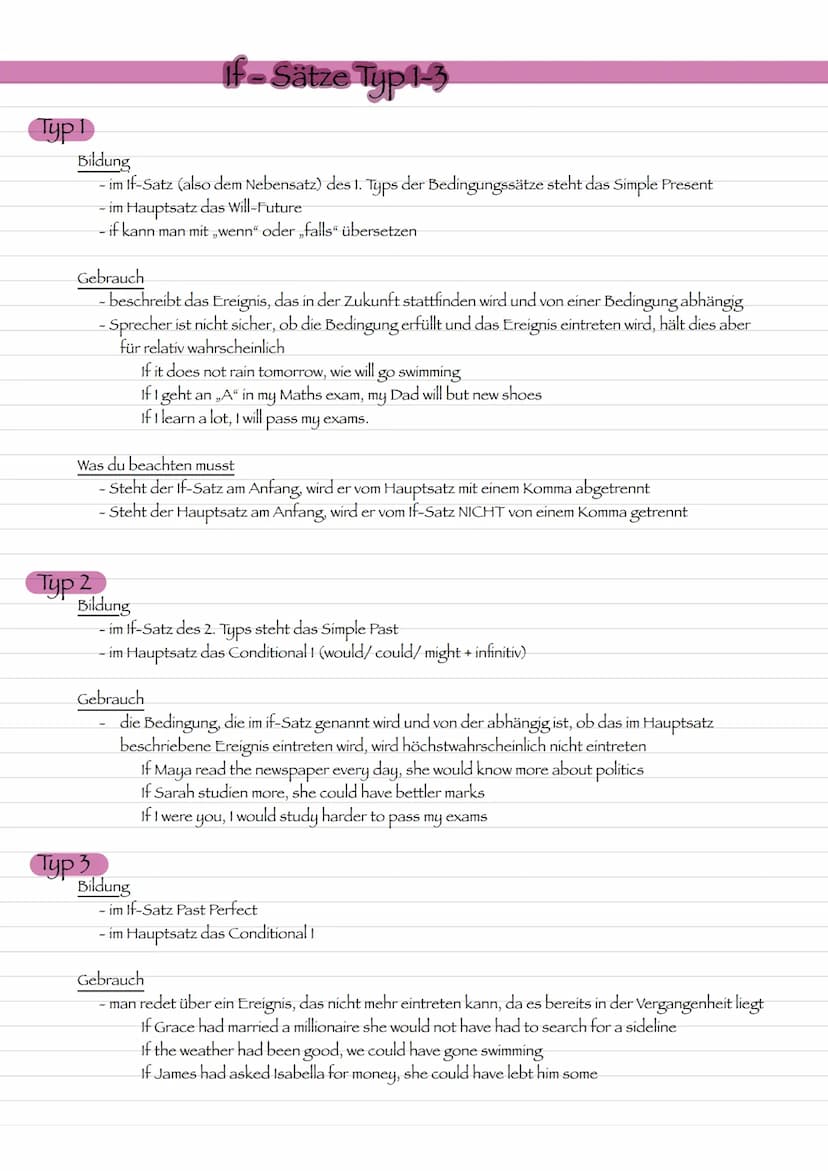 If – Sätze Typ 1-3
Typ 1
Bildung
- im If-Satz (also dem Nebensatz) des 1. Typs der Bedingungssätze steht das Simple Present
- im Hauptsatz das Will-Future
- if kann man mit „wenn“ oder „falls“ übersetzen
Gebrauch
- beschreibt das Ereignis, das in der Zukunft stattfinden wird und von einer Bedingung abhängig
- Sprecher ist nicht sicher, ob die Bedingung erfüllt und das Ereignis eintreten wird, hält dies aber
für relativ wahrscheinlich
If it does not rain tomorrow, wie will go swimming
If I geht an „A“ in my Maths exam, my Dad will but new shoes
If I learn a lot, I will pass my exams.
Was du beachten musst
- Steht der If-Satz am Anfang, wird er vom Hauptsatz mit einem Komma abgetrennt
- Steht der Hauptsatz am Anfang, wird er vom If-Satz NICHT von einem Komma getrennt
Typ 2
Bildung
- im If-Satz des 2. Typs steht das Simple Past
- im Hauptsatz das Conditional I (would/ could/ might + infinitiv)
Gebrauch
- die Bedingung, die im if-Satz genannt wird und von der abhängig ist, ob das im Hauptsatz
beschriebene Ereignis eintreten wird, wird höchstwahrscheinlich nicht eintreten
If Maya read the newspaper every day, she would know more about politics
If Sarah studien more, she could have bettler marks
If I were you, I would study harder to pass my exams
Typ 3
Bildung
- im If-Satz Past Perfect
- im Hauptsatz das Conditional I
Gebrauch
- man redet über ein Ereignis, das nicht mehr eintreten kann, da es bereits in der Vergangenheit liegt
If Grace had married a millionaire she would not have had to search for a sideline
If the weather had been good, we could have gone swimming
If James had asked Isabella for money, she could have lebt him some